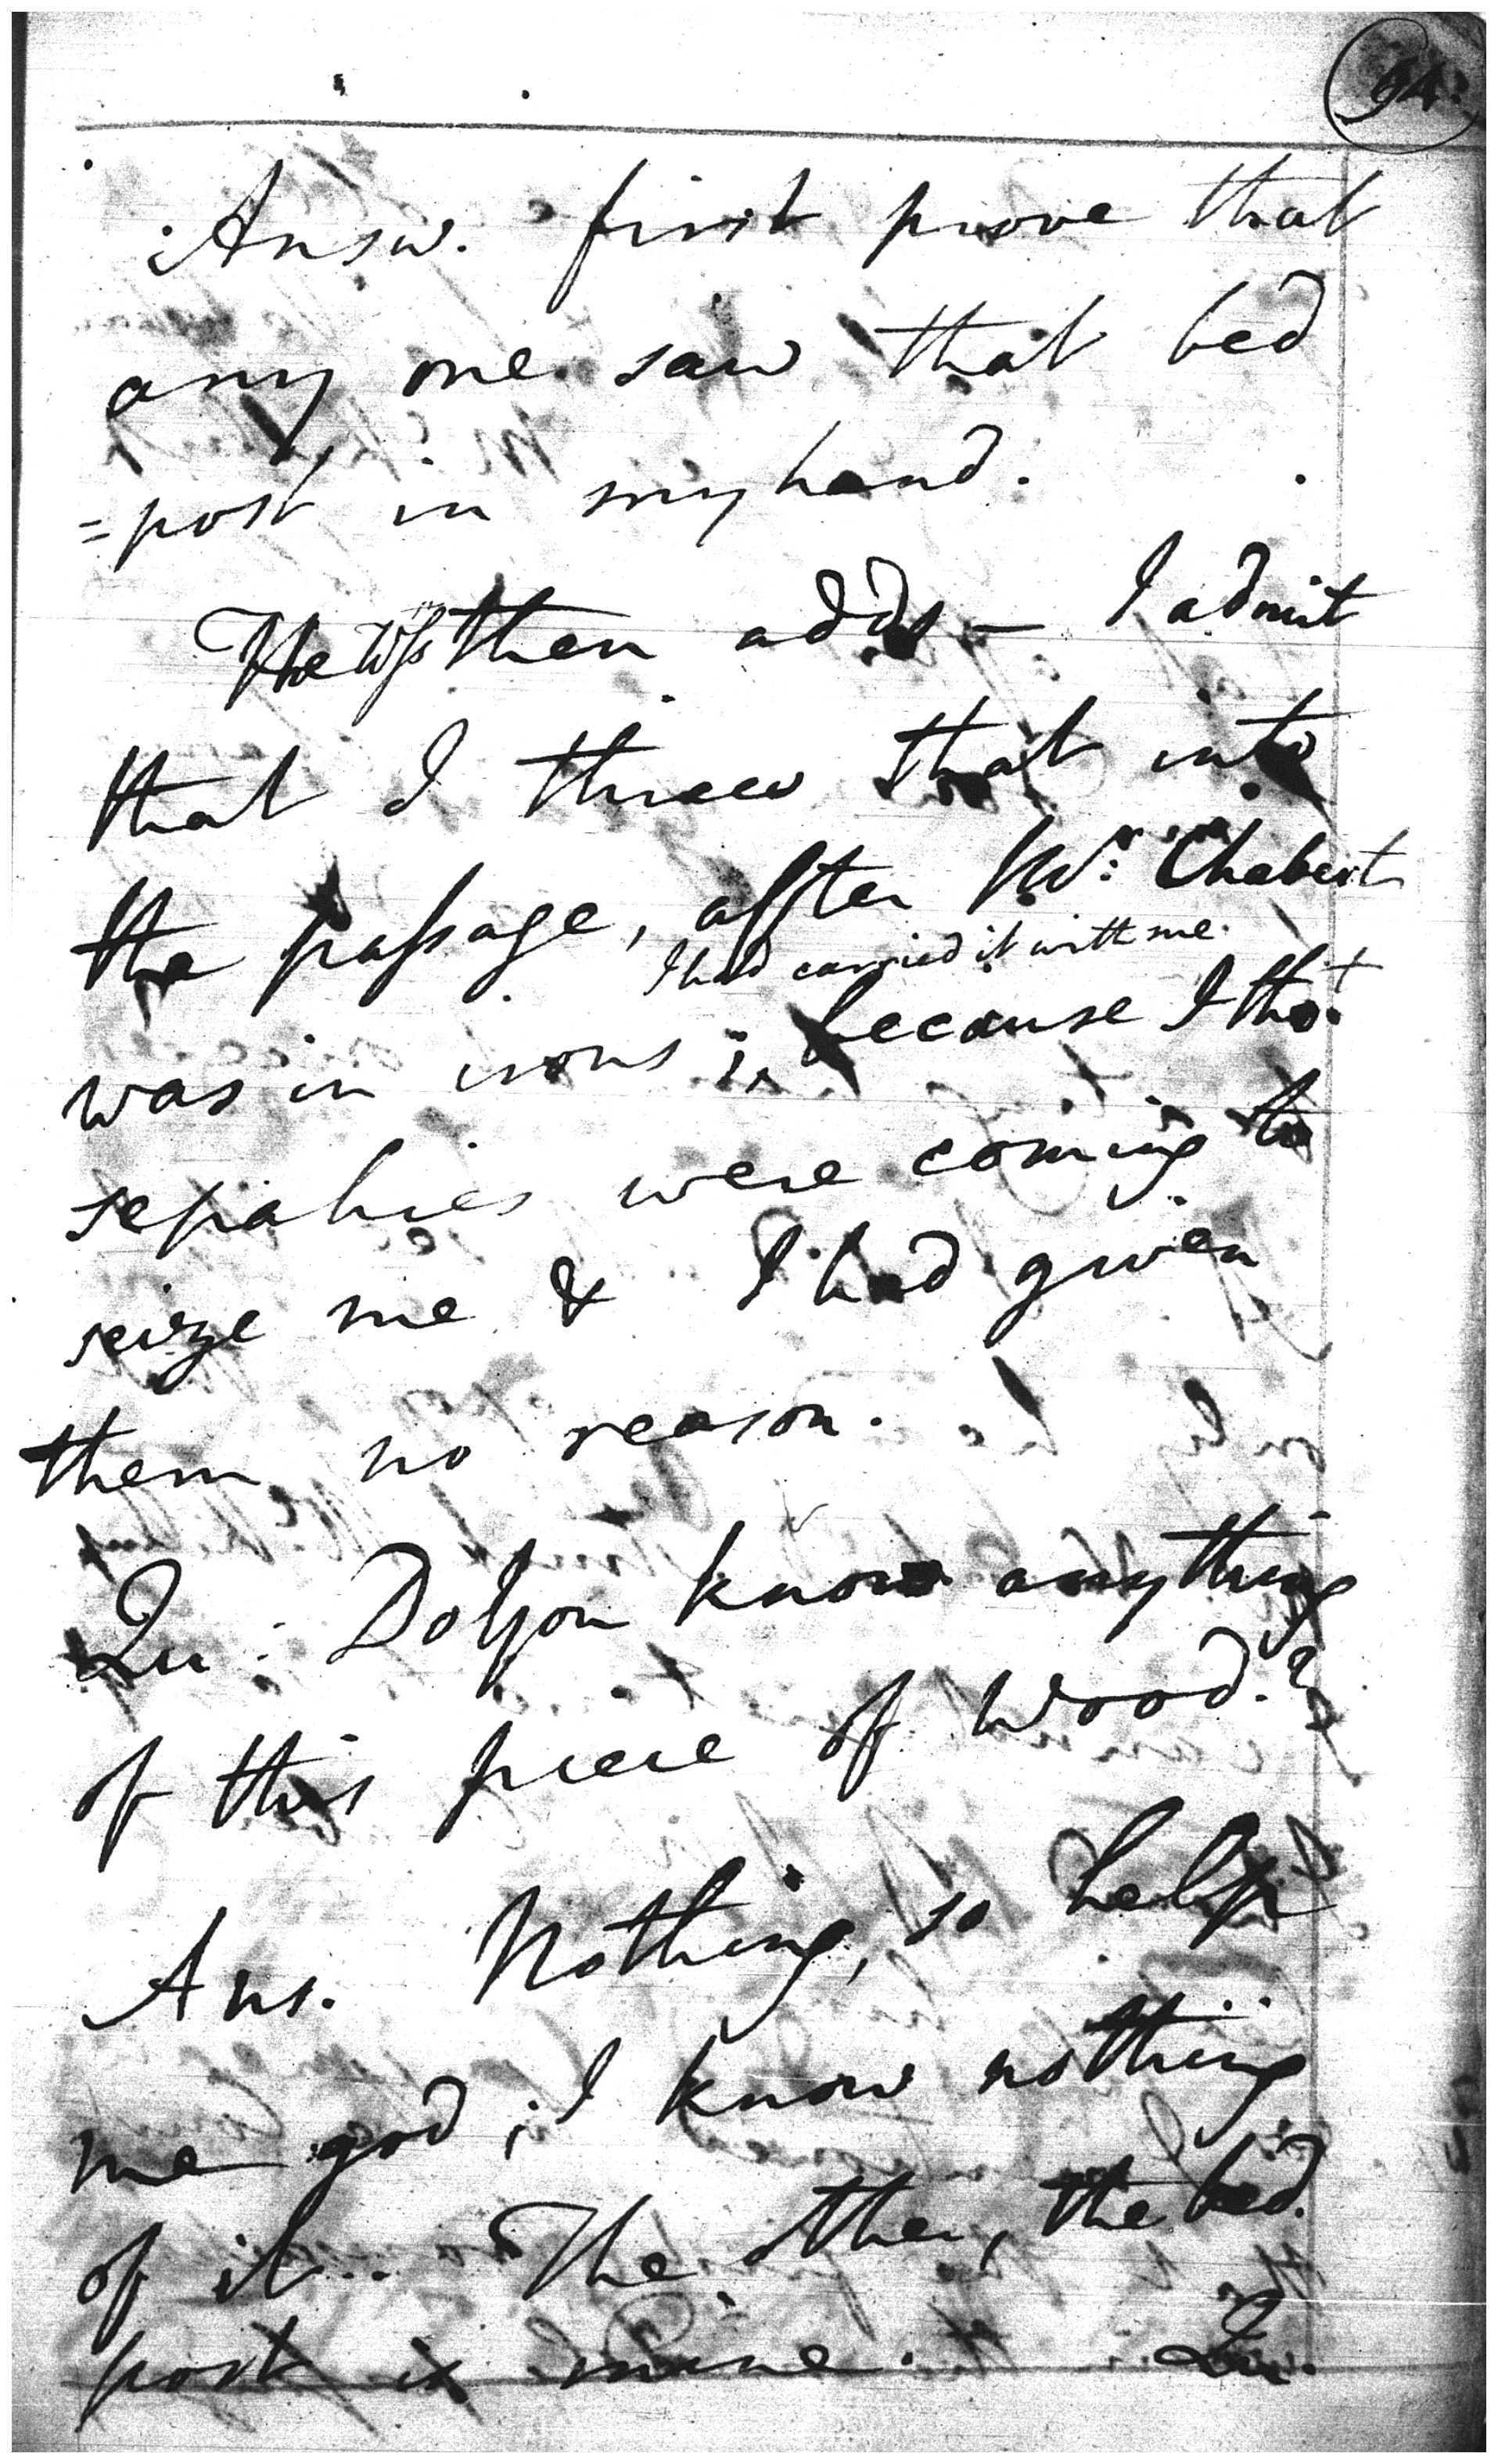 94.
Answ. first prove that
any one saw that bed
=post in my hand.
The Wss then adds — I admit
that I threw that into
the passage, after Mr. Chabert
I had carried it with me.
was in irons; because I thot
sepahies were coming to
seize me & I had given
them no reason.
Qu: Do you know anything
of this piece of wood?
Ans. Nothing, so help
me god; I know nothing
of it. The other, the bed.
post is mine. Qu.